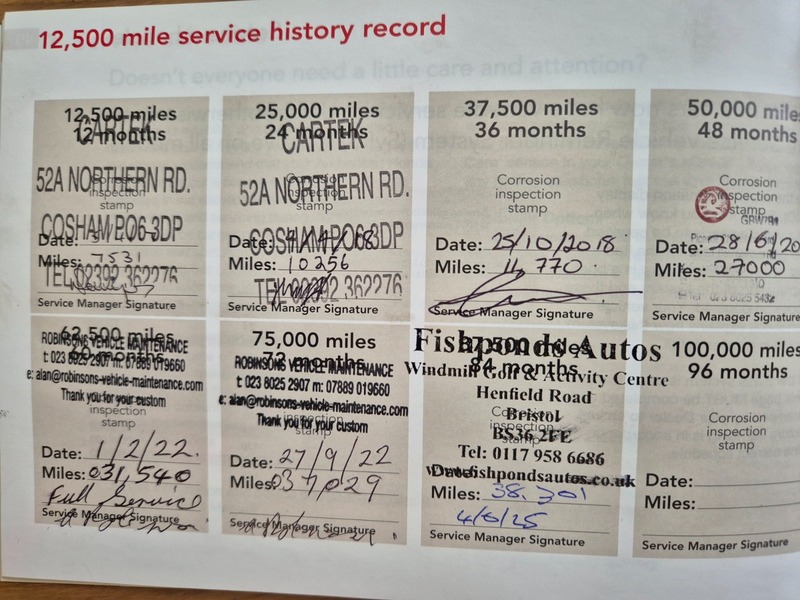 12,500 mile service history record
Doesn't everyone need a little care and attention?
12,500 miles
12 months
CARTER
52A NORTHERN RD.
COSHAM PO6 3DP
inspection
stamp
Date:
Miles: 7531
TEL 02392 362276
Service Manager Signature
25,000 miles
24 months
CARTER
52A NORTHERN RD.
COSHAM PO6 3DP
Date:
Miles: 10256
TEL 02392 362276
Service Manager Signature
37,500 miles
36 months
Corrosion
inspection
stamp
Date: 25/10/2018
Miles: 11,770
Service Manager Signature
50,000 mile
48 months
Corrosion
inspection
stamp
Date: 28/6/20
Miles: 27000
Service Manager Signature
62,500 miles
months
ROBINSONS VEHICLE MAINTENANCE
t: 023 8025 2907 m: 07889 019660
e: alan@robinsons-vehicle-maintenance.com
Thank you for your custom
inspection
stamp
Date: 1/2/22.
Miles: 031,540
Full Service
Service Manager Signature
75,000 miles
72 months
ROBINSONS VEHICLE MAINTENANCE
t: 023 8025 2907 m: 07889 019660
e: alan@robinsons-vehicle-maintenance.com
Thank you for your custom
stamp
Date: 27/9/22
Miles: 037,029
Service Manager Signature
87,500 miles
84 months
Fishponds Autos
Windmill Golf & Activity Centre
Henfield Road
Bristol
BS36 2FE
Tel: 0117 958 6686
www.fishpondsautos.co.uk
Date:
Miles: 38,301
4/6/25
Service Manager Signature
100,000 miles
96 months
Corrosion
inspection
stamp
Date:
Miles:
Service Manager Signature